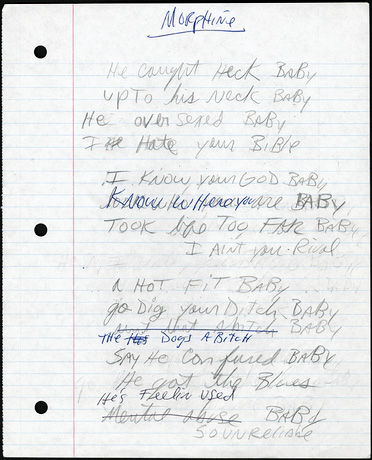 Morphine
He caught Heck BABY
up To his Neck BABY
He over sexed BABY
I Hate your BiBle
I Know your GOD BABY
Know who you are BABY
TOOK Too FAR BABY
I Aint your Rival
A HOT FiT BABY
go Dig your Ditch BABY
BABY
The Dogs A Bitch
SAy He Confused BABY
He got the Blues
He's Feelin used
Mental abuse BABY
SO UNReliable